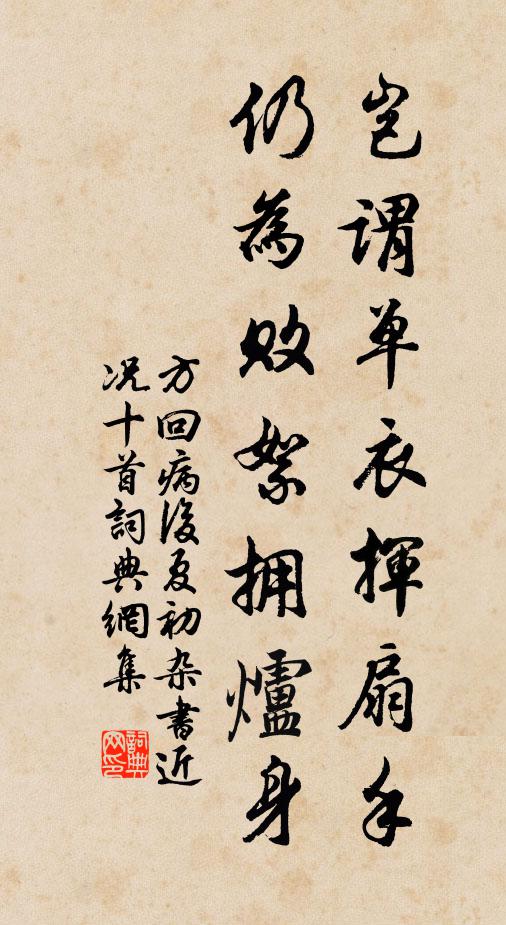 岂谓单衣挥扇手
仍為败絮拥爐身
方回病後夏初杂書近
况十首詞典網集
詞典网印